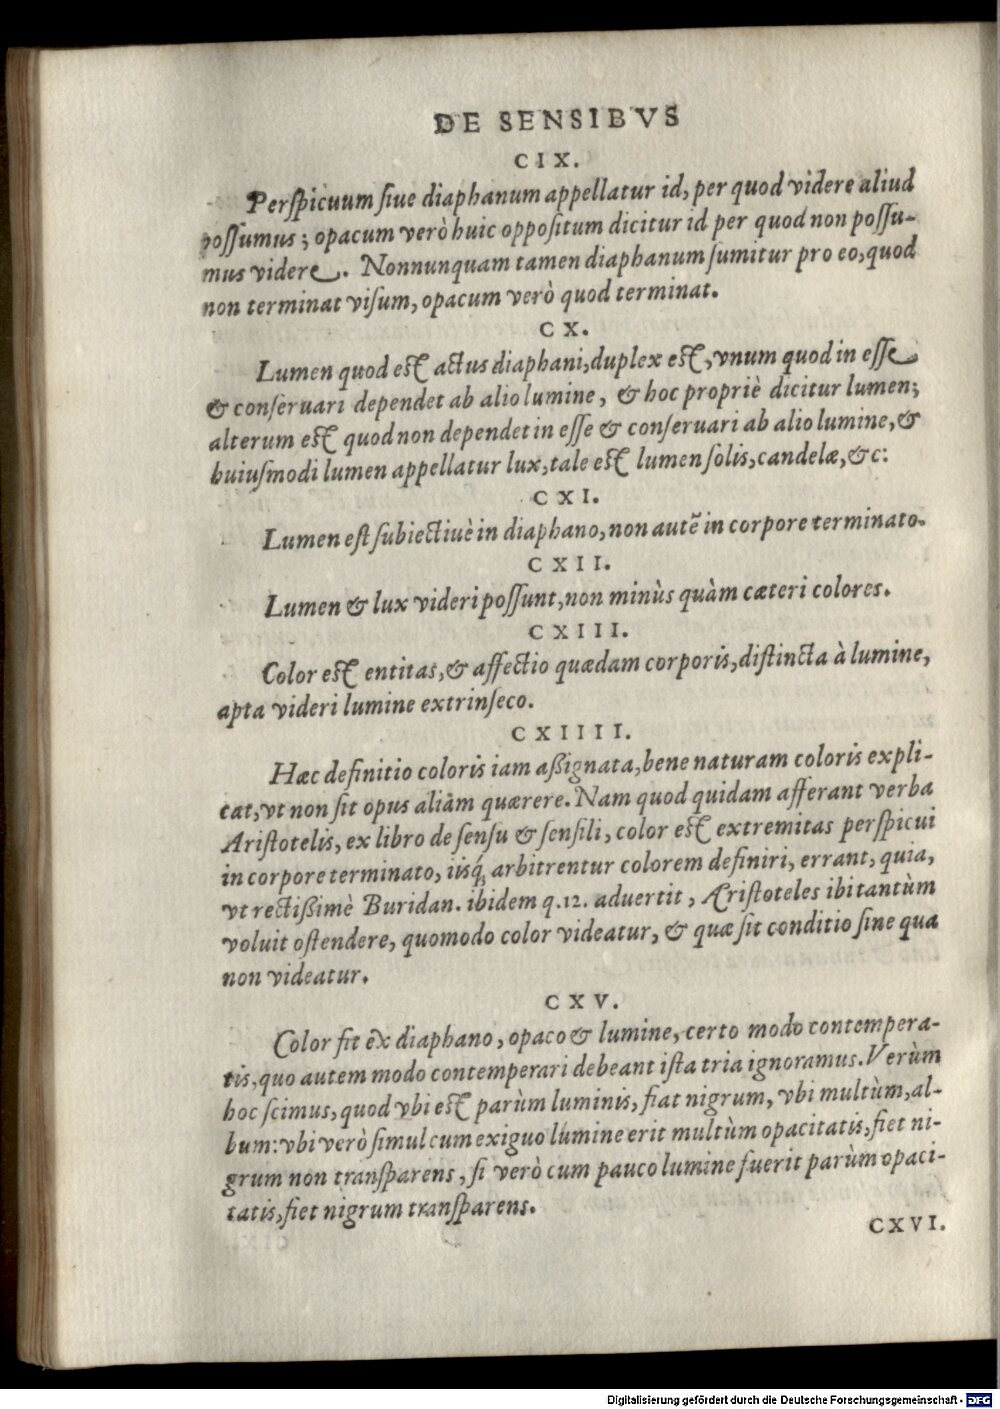 DE SENSIBVS
CIX.
Perſpicuum ſiue diaphanum appellatur id, per quod videre aliud
poſſumus; opacum verò huic oppoſitum dicitur id per quod non poſſu-
mus videre. Nonnunquam tamen diaphanum ſumitur pro eo, quod
non terminat viſum, opacum verò quod terminat.
CX.
Lumen quod eſt actus diaphani, duplex eſt, vnum quod in eſſe
& conſeruari dependet ab alio lumine, & hoc propriè dicitur lumen;
alterum eſt quod non dependet in eſſe & conſeruari ab alio lumine, &
huiuſmodi lumen appellatur lux, tale eſt lumen ſolis, candelæ, &c:
CXI.
Lumen eſt ſubiectiuè in diaphano, non autẽ in corpore terminato.
CXII.
Lumen & lux videri poſſunt, non minùs quàm cæteri colores.
CXIII.
Color eſt entitas, & affectio quædam corporis, diſtincta à lumine,
apta videri lumine extrinſeco.
CXIIII.
Hæc definitio coloris iam aßignata, bene naturam coloris expli-
cat, vt non ſit opus aliàm quærere. Nam quod quidam afferant verba
Ariſtotelis, ex libro de ſenſu & ſenſili, color eſt extremitas perſpicui
in corpore terminato, iiſq́ꝫ arbitrentur colorem definiri, errant, quia,
vt rectißimè Buridan. ibidem q.12. aduertit, Ariſtoteles ibi tantùm
voluit oſtendere, quomodo color videatur, & quæ ſit conditio ſine qua
non videatur.
CXV.
Color fit ex diaphano, opaco & lumine, certo modo contempera-
tis, quo autem modo contemperari debeant iſta tria ignoramus. Verùm
hoc ſcimus, quod vbi eſt parùm luminis, fiat nigrum, vbi multùm, al-
bum: vbi verò ſimul cum exiguo lumine erit multùm opacitatis, fiet ni-
grum non tranſparens, ſi verò cum pauco lumine fuerit parùm opaci-
tatis, fiet nigrum tranſparens.
CXVI.
Digitalisierung gefördert durch die Deutsche Forschungsgemeinschaft - DFG